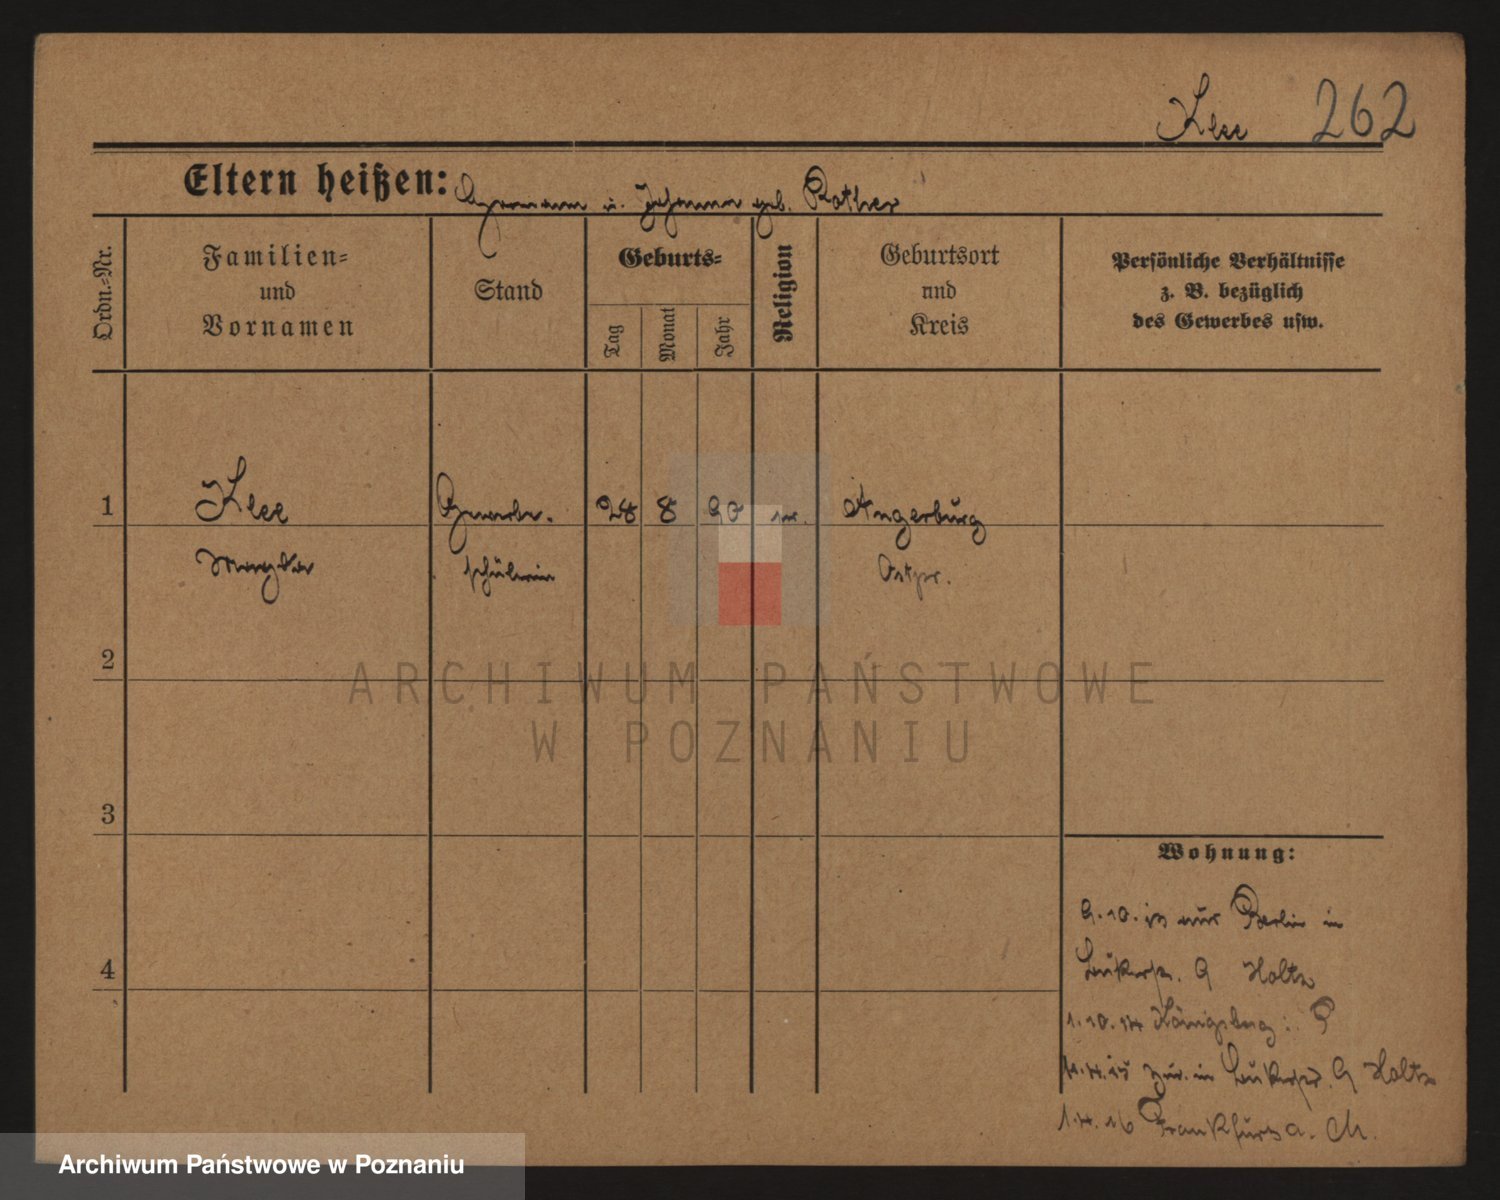 Klee 262
Eltern heißen: Hermann u. Johanna geb. Rother
Ordn.-Nr.
Familien=
und
Vornamen
Stand
Geburts=
Tag
Monat
Jahr
Religion
Geburtsort
und
Kreis
Persönliche Verhältnisse
z. B. bezüglich
des Gewerbes usw.
1 Klee Gewerbe- 28 8 90 Angerburg
schülerin Ostpr.
2
3
4
Wohnung:
9.10.13 aus Berlin in
9 Holtz
1.10.14 Königsberg i. P
zur. in 9 Holtz
1.4.16 Frankfurt a. M.
ARCHIWUM PAŃSTWOWE
W POZNANIU
Archiwum Państwowe w Poznaniu